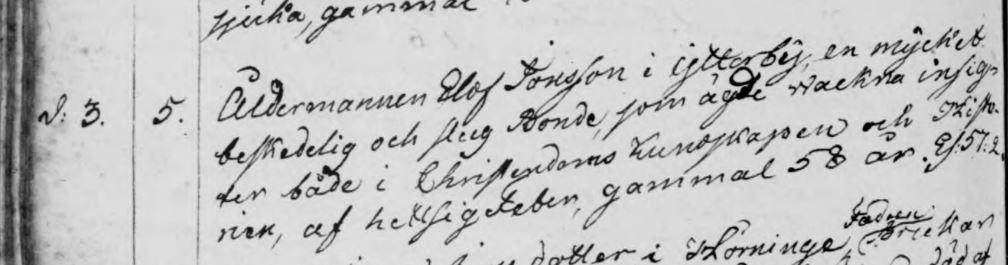 sjuka, gammal
d. 3. 5. Åldermannen Elof Jönsson i Ytterby, en mycket
beskedelig och slug Bonde, som ägde wackra insig-
ter både i Christendoms kunskapen och Histo-
rien, af hetsig feber, gammal 58 år. Es: 57: 2.
dotter i Thorninge, Fadren